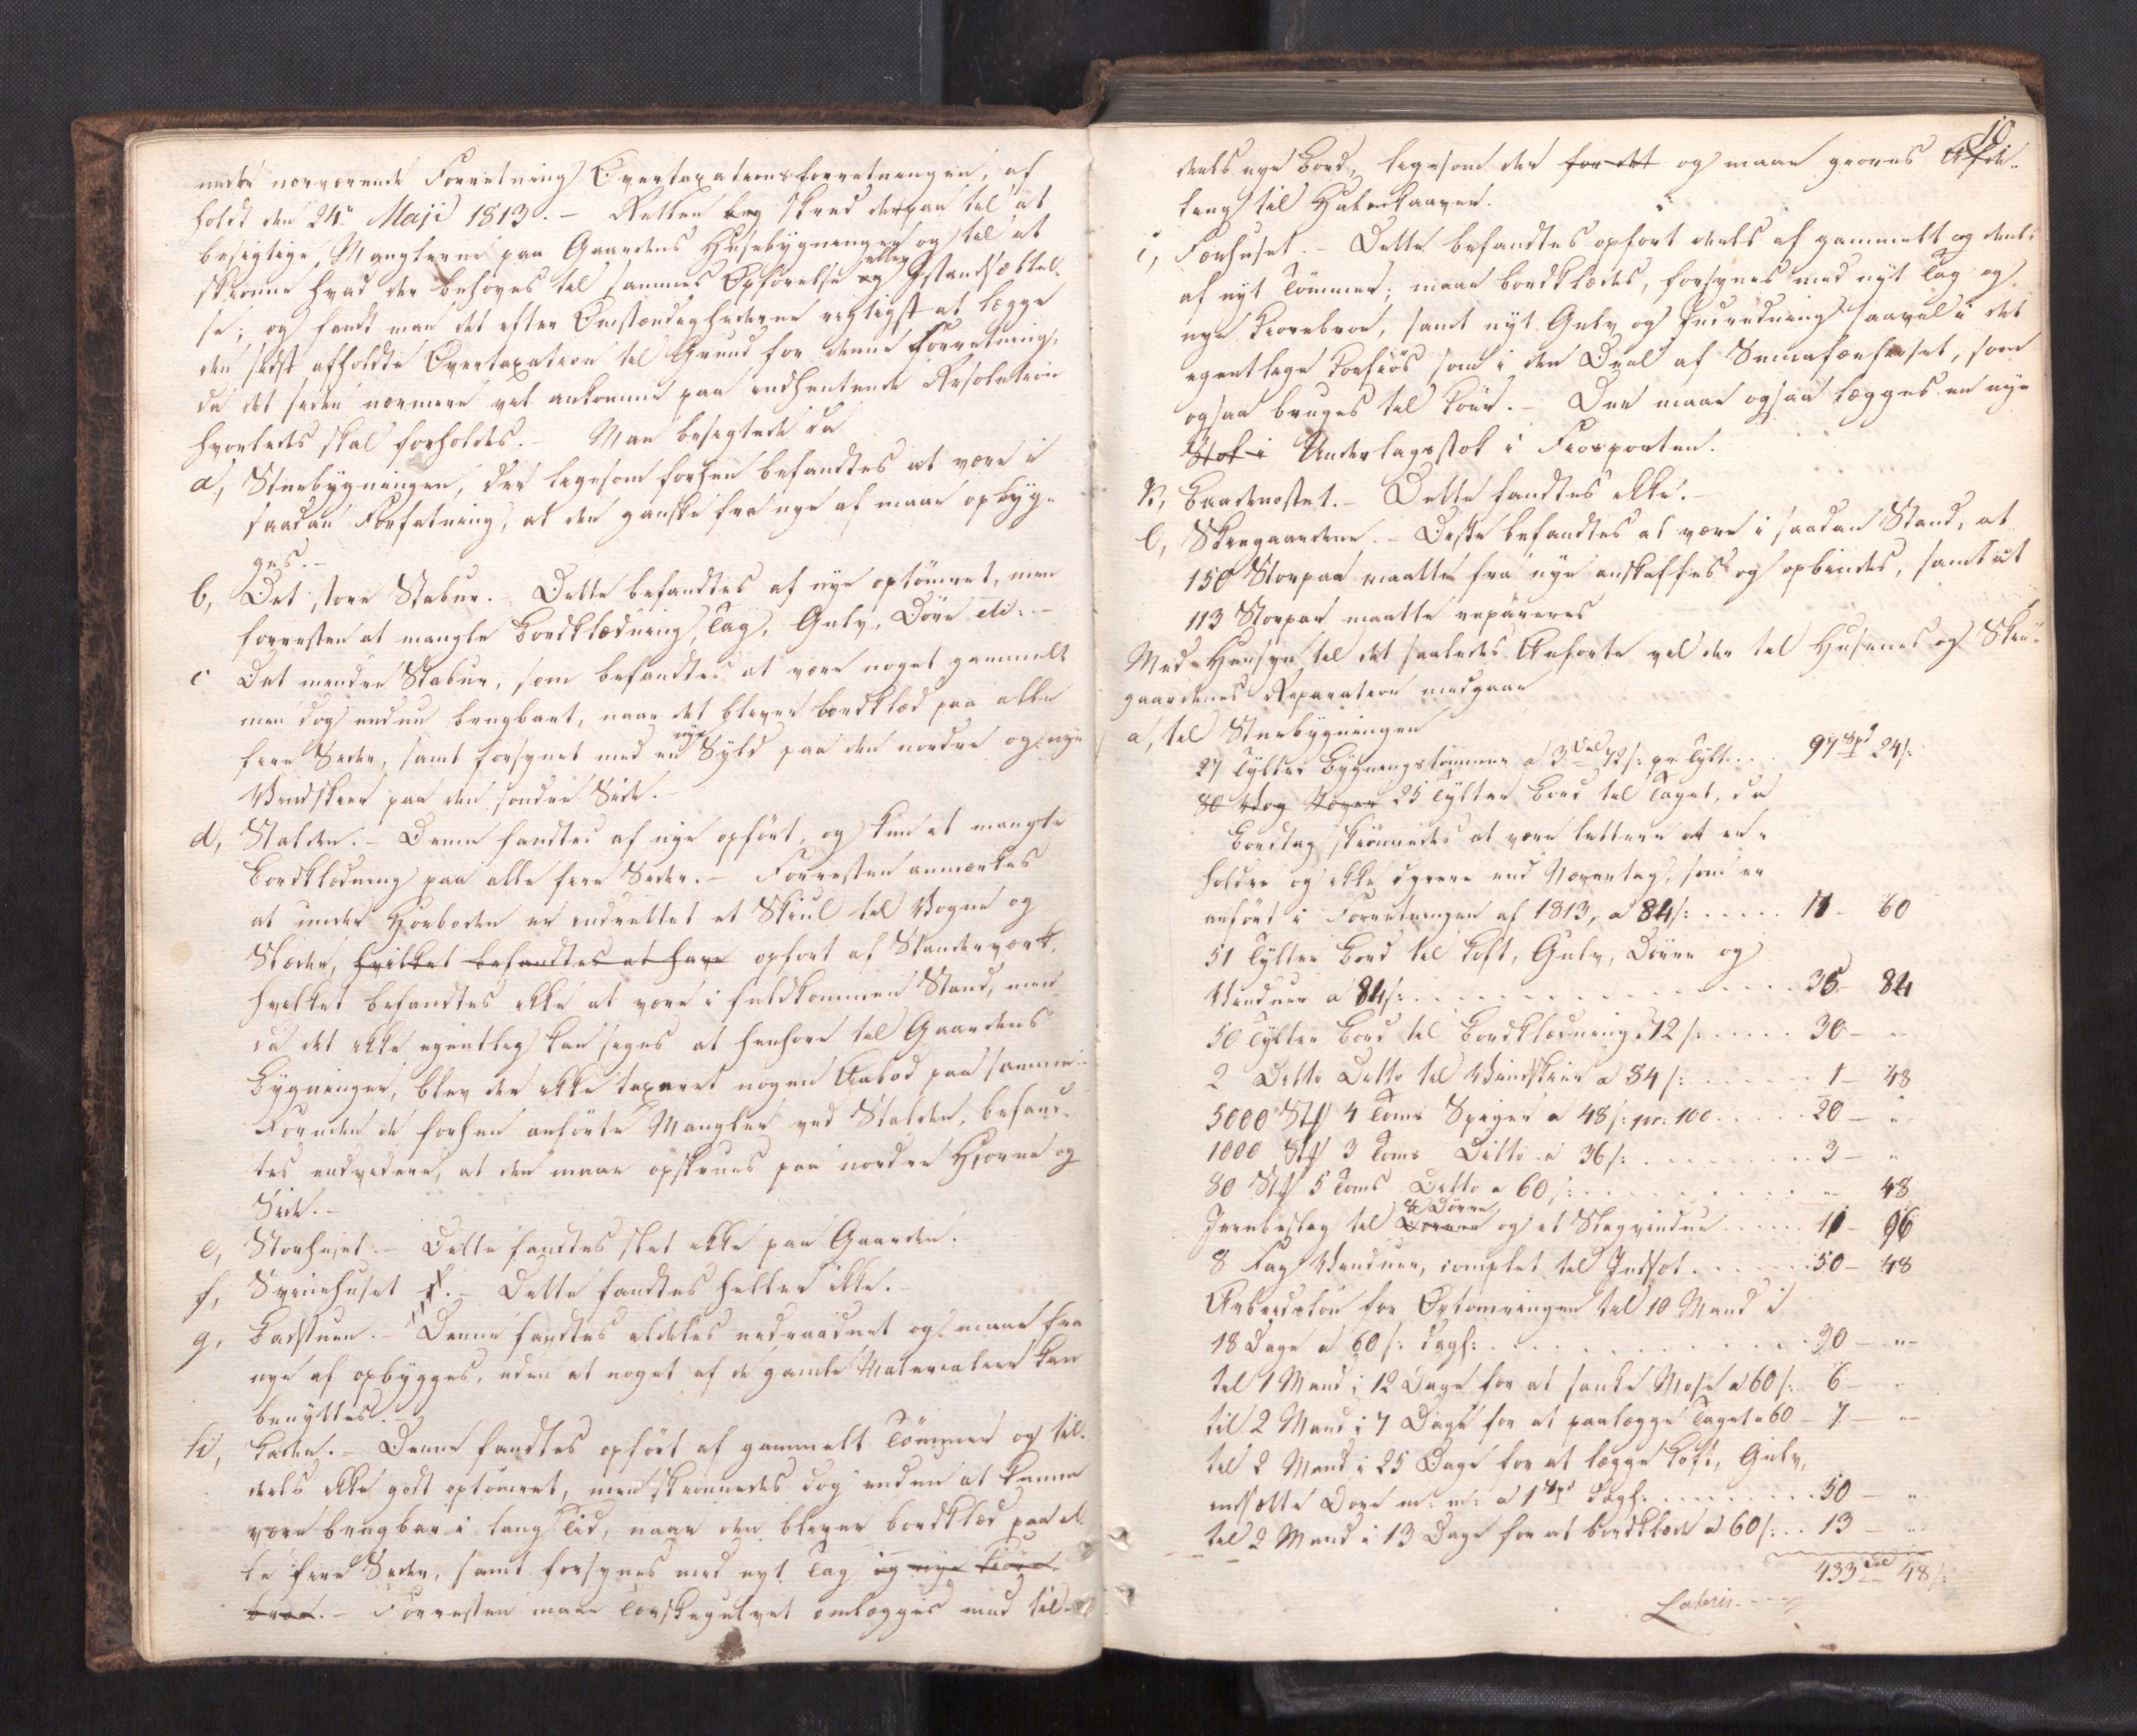 under nærværende Forretning Overtaxationsforretningen, af-
holdt den 24de Maji 1813. – Retten beg skred derpaa til at
besigtige Manglerne paa Gaardens Husebygninger og til at
skiønne hvad der behøves til sammes Opførelse og eller Istandsættel-
se; og fandt man det efter Omstændighederne rigtigst at lægge
den sidst afholdte Overtaxation til Grund for denne Forretning,
da det siden nærmere vil ankomme paa indhentende Resolution
hvorledes skal forholdes. – Man besigtede da
a, Stuebygningen, der ligesom forhen befandtes at være i
saadan Forfatning, at den ganske fra nye af maae opbyg-
ges. –
b, Det store Stabur. – Dette befandtes af nye optømret, men
forresten at mangle Bordklædning, Tag, Gulv, Døre etc: –
c Det mindre Stabur, som befandtes at være noget gammelt
men dog endnu brugbart, naar det bliver bordklæd paa alle
fire Sider, samt forsynet med en nye Syld paa den nordre og nye
Vindskeer paa den søndre Side. –
d, Stalden. – Denne fandtes af nye opført, og kun at mangle
Bordklædning paa alle fire Sider. – Forresten anmærkes
at under Høeboden er indrettet et Skiul til Vogne og
Slæder, hvilket befandtes at have opført af Standerværk,
hvilket befandtes ikke at være i fuldkommen Stand, men
da det ikke egentlig kan siges at henhøre til Gaardens
Bygninger, blev der ikke taxeret nogen Aabod paa samme. –
Foruden de forhen anførte Mangler ved Stalden, befand-
tes endvidere, at den maae opskrues paa nordre Hjørne og
Side. –
e, Storhuset. – Dette fandtes slet ikke paa Gaarden.
f, Sviinehuset f. – Dette fandtes heller ikke. –
g, Badstuen. – Denne fandtes aldeles nedraadnet og maae fra
nye af opbygges, uden at noget af de gamle Materialier kan
benyttes. –
h, Laden. – Denne fandtes opført af gammelt Tømmer og til-
deels ikke godt optømret, men skiønnedes dog endnu at kunne
være brugbar i lang Tid, naar den bliver bordklæd paa al-
le fire Sider, samt forsynes med nyt Tag og nye Kiøre-
broe. – Forresten maae Tærskegulvet omlægges med til-
10
deels nye Bord, ligesom der for det og maae giøres Afde-
ling til Halmhaaven.
i, Fæhuset. – Dette befandtes opført deels af gammelt og deels
af nyt Tømmer; maae bordklædes, forsynes med nyt Tag og
nye Kiørebroe, samt nyt Gulv og Indredning saavel i det
egentlige Koefiøs som i den Deel af Smaafæehuset, som
ogsaa bruges til Kiøer. – Der maae ogsaa lægges en nye
Stok i Underlagsstok i Fiøsporten.
k, Baadenøstet. – Dette fandtes ikke. –
l, Skiegaardene. – Disse befandtes at være i saadan Stand, at
150 Storpar maatte fra nye anskaffes og opbindes, samt at
113 Storpar maatte repareres
Med Hensyn til det saaledes Anførte vil der til Husenes og Skie-
gaardenes Reparation medgaae
a, til Stuebygningen
27 Tylter Bygningstømmer a 3 Dal 72 s: pr. Tylt . . . 97 Spd 24 s:
80 Vog Never 25 Tylter Bord til Taget, da
Bordtag skiønnedes at være lettere at er-
holdes og ikke dyrere end Nævertag, som er
anført i Forretningen af 1813, a 84 s: . . . . . 11 – 60
51 Tylter Bord til Loft, Gulv, Dørre og
Vinduer a 84 s: . . . . . . . . . . . . . . 35 – 84
50 Tylter Bord til Bordklædning a 72 s: . . . . . 30 – "
2 Ditto Ditto til Vindskier a 84 s: . . . . . . 1 – 48
5000 Stk 4 Toms Spiger a 48 s: pr: 100 . . . . . 20 – "
1000 Stk 3 Toms Ditto a 36 s: . . . . . . . . 3 – "
80 Stk 5 Toms Ditto a 60 s: . . . . . . . . . " – 48
Jernbeslag til Dørren 8 Dørre og et Slagvindue . . . . . 11 – 96
8 Fag Vinduer, complet til Indsat . . . . . . 50 – 48
Arbeidsløn for Optømringen til 10 Mand i
18 Dage a 60 s: dagl: . . . . . . . . . . . . 90 – "
til 1 Mand i 12 Dage for at sanke Mose a 60 s: 6 – "
til 2 Mand i 7 Dage for at paalægge Taget a 60 – 7 – "
til 2 Mand i 25 Dage for at lægge Loft, Gulv,
indsætte Døre m: m: a 1 Spd dagl: . . . . . . . . 50 – "
til 2 Mand i 13 Dage for at bordklæde a 60 s: . . 13 – "
433 Dal 48 s:
Lateris